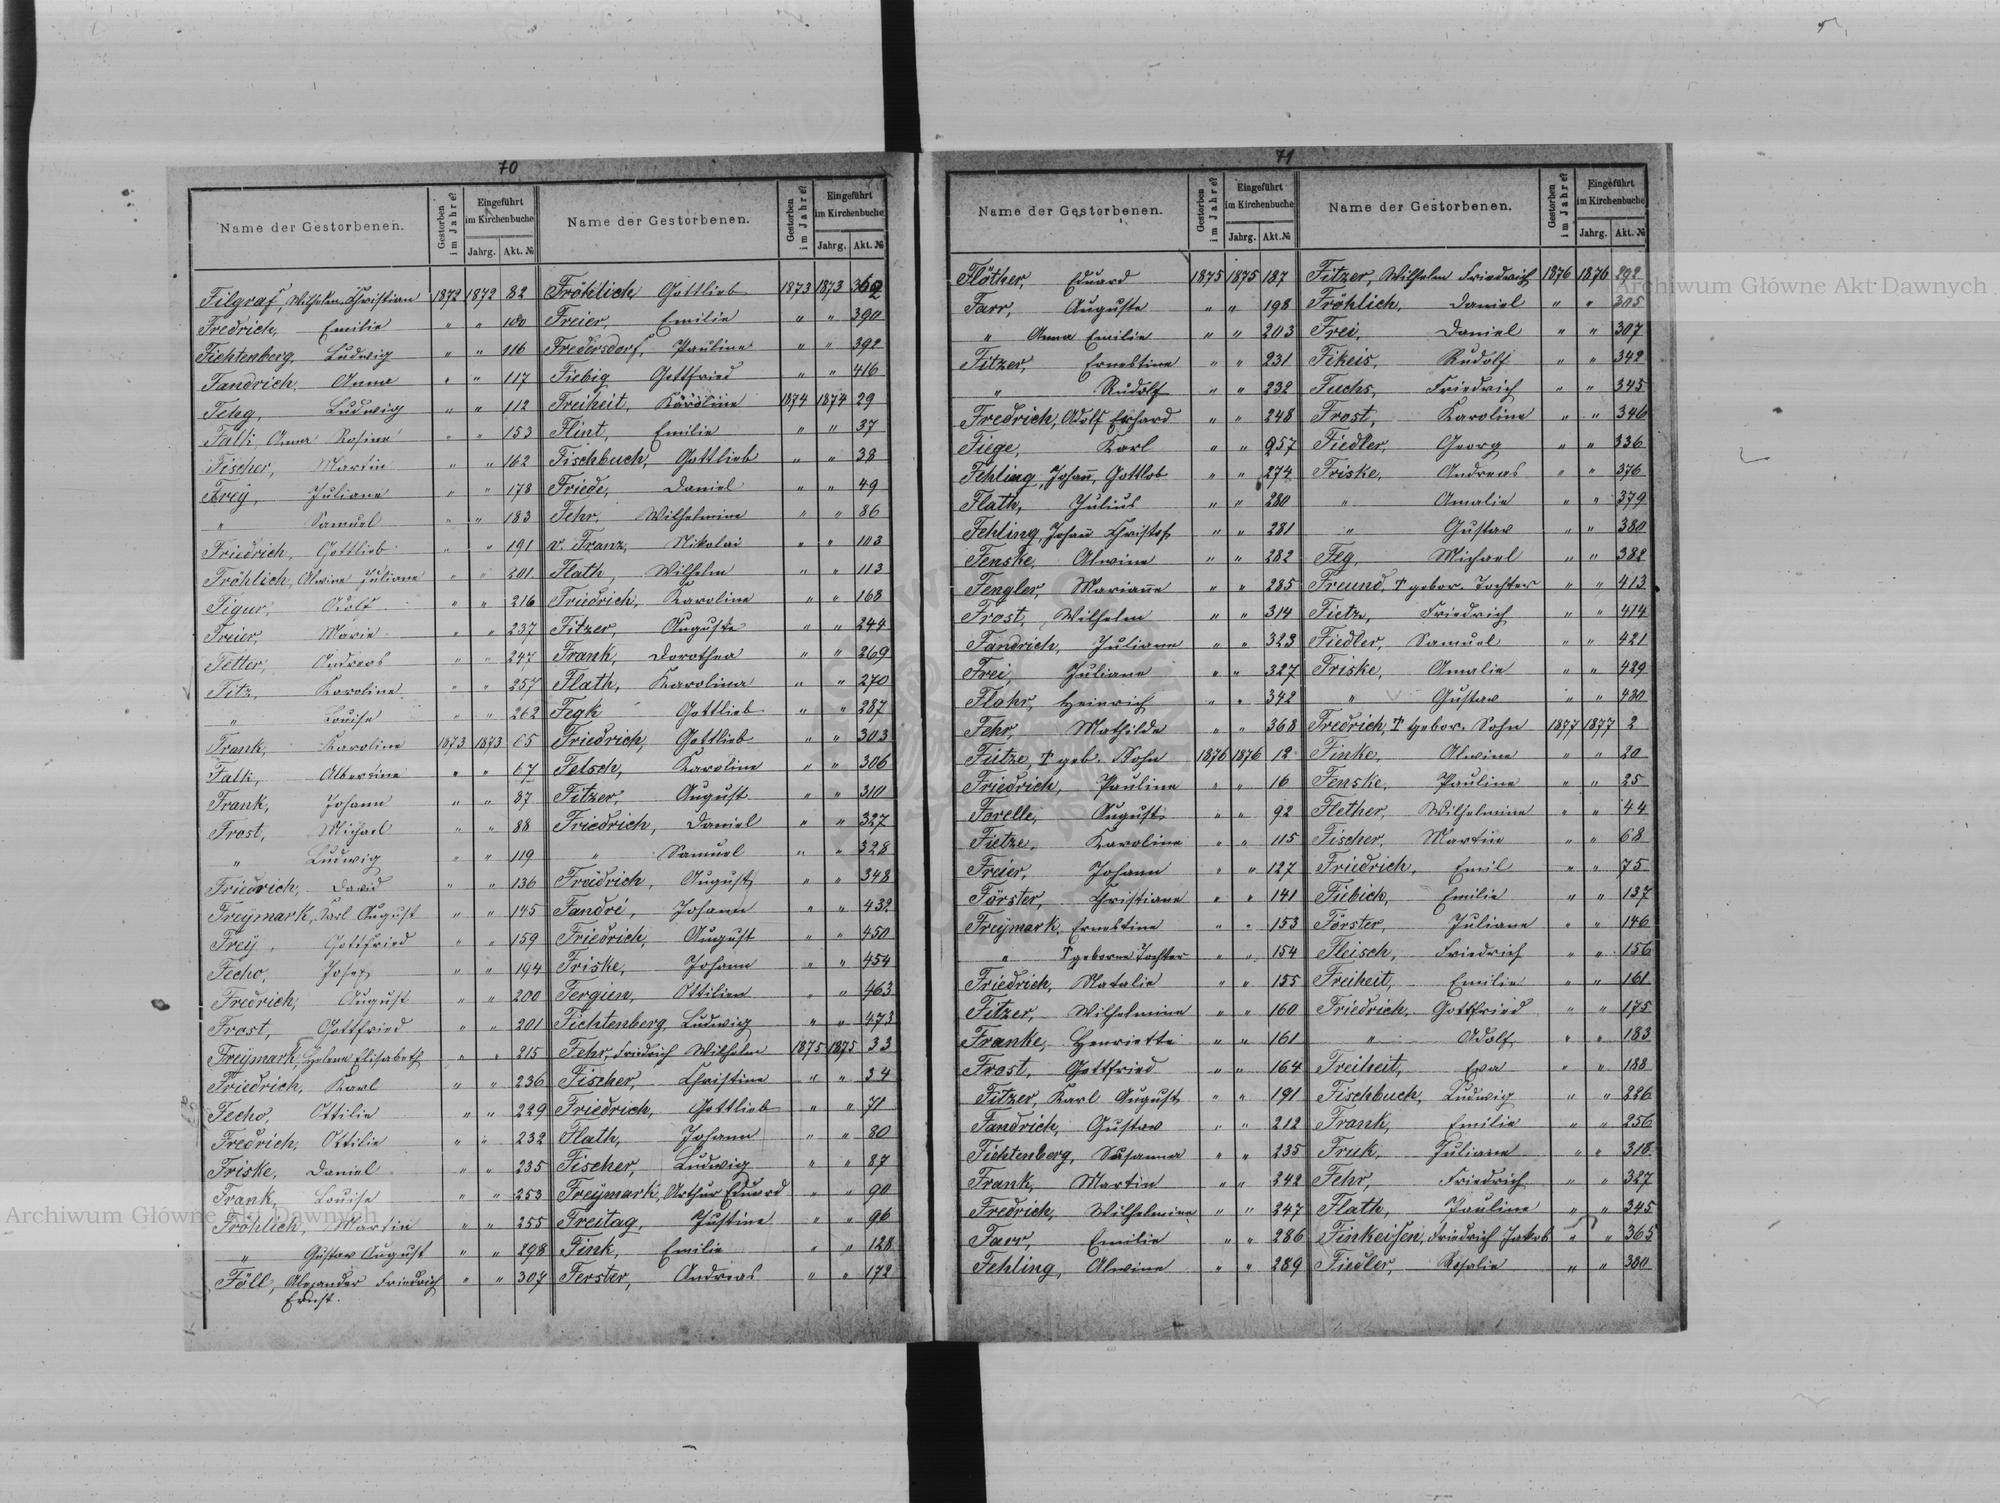 70
Name der Gestorbenen.
Gestorben im Jahre?
Eingeführt im Kirchenbuche
Jahrg. Akt. №
Filgraf, Wilhelm Christian 1872 1872 82
Fredrich, Emilie " " 100
Fichtenberg, Ludwig " " 116
Fandrich, Anna " " 117
Fehg, Ludwig " " 112
Falk Anna Rosine " " 153
Fischer, Martin " " 162
Frey, Juliane " " 178
" Samuel " " 183
Friedrich, Gottlieb " " 191
Fröhlich, Alwine Juliane " " 201
Figur, Adolf " " 216
Freier, Marie " " 237
Fetter, Andreas " " 247
Fitz, Karoline " " 257
" Louise " " 262
Frank, Karoline 1873 1873 65
Falk, Albertine " " 67
Frank, Johann " " 87
Frost, Michael " " 88
" Ludwig " " 119
Friedrich, David " " 136
Freymark, Karl August " " 145
Frey, Gottfried " " 159
Fecho, Josef " " 194
Fredrich, August " " 200
Frost, Gottfried " " 201
Freymark, Helene Elisabeth " " 215
Friedrich, Karl " " 236
Fecho, Ottilie " " 229
Fredrich, Ottilie " " 232
Friske, Daniel " " 235
Frank, Louise " " 253
Fröhlich, Martin " " 255
" Gustav August " " 298
Föll, Alexander Friedrich " " 307
Ernst.
Name der Gestorbenen.
Gestorben im Jahre?
Eingeführt im Kirchenbuche
Jahrg. Akt. №
Fröhlich Gottlieb 1873 1873 362
Freier, Emilie " " 390
Fredersdorf, Pauline " " 392
Fiebig Gottfried " " 416
Freiheit, Karoline 1874 1874 29
Flint, Emilie " " 37
Fischbuch, Gottlieb " " 38
Friede, Daniel " " 49
Fehr, Wilhelmine " " 86
v. Franz, Nikolai " " 103
Flath, Wilhelm " " 113
Friedrich, Karoline " " 168
Fitzer, Auguste " " 244
Frank, Dorothea " " 269
Flath, Karolina " " 270
Fegk Gottlieb " " 287
Friedrich, Gottlieb " " 303
Felsch, Karoline " " 306
Fitzer, August " " 310
Friedrich, Daniel " " 327
" Samuel " " 328
Freidrich, August " " 348
Fandré, Johann " " 432
Friedrich, August " " 450
Friske, Johann " " 454
Fergien, Ottilien " " 463
Fichtenberg, Ludwig " " 473
Fehr, Friedrich Wilhelm 1875 1875 33
Fischer, Christine " " 34
Friedrich, Gottlieb " " 71
Flath, Johann " " 80
Fischer, Ludwig " " 87
Freymark, Arthur Eduard " " 90
Freitag, Justine " " 96
Fink, Emilie " " 128
Ferster, Andreas " " 172
71
Name der Gestorbenen.
Gestorben im Jahre?
Eingeführt im Kirchenbuche
Jahrg. Akt. №
Flöther, Eduard 1875 1875 187
Farr, Auguste " " 198
" Anna Emilie " " 203
Fitzer, Ernestine " " 231
" Rudolf " " 232
Fredrich, Adolf Erhard " " 248
Fiege, Karl " " 257
Fehling, Johañ, Gottlob " " 274
Flath, Julius " " 280
Fehling, Johañ Christof " " 281
Fenske, Alwine " " 282
Fengler, Mariañe " " 285
Frost, Wilhelm " " 314
Fandrich, Juliane " " 323
Frei, Juliane " " 327
Flohr, Heinrich " " 342
Fehr, Mathilde " " 368
Fietze, † geb. Sohn 1876 1876 12
Friedrich, Pauline " " 16
Forelle, August " " 92
Fietze, Karoline " " 115
Freier, Johann " " 127
Förster, Christiane " " 141
Freymark, Ernestine " " 153
" † geborne Tochter " " 154
Friedrich, Natalie " " 155
Fitzer, Wilhelmine " " 160
Franke, Henriette " " 161
Frost, Gottfried " " 164
Fitzer, Karl August " " 191
Fandrich, Gustav " " 212
Fichtenberg, Susanna " " 235
Frank, Martin " " 242
Fredrich, Wilhelmine " " 247
Farr, Emilie " " 286
Fehling, Alwine " " 289
Name der Gestorbenen.
Gestorben im Jahre?
Eingeführt im Kirchenbuche
Jahrg. Akt. №
Fitzer, Wilhelm Friedrich 1876 1876 292
Fröhlich, Daniel " " 305
Frei, Daniel " " 307
Fikeis, Rudolf " " 342
Fuchs, Friedrich " " 345
Frost, Karoline " " 346
Fiedler, Georg " " 336
Friske, Andreas " " 376
" Amalie " " 379
" Gustav " " 380
Feg, Michael " " 382
Freund, † gebor. Tochter " " 413
Fietz, Friedrich " " 414
Fiedler, Samuel " " 421
Friske, Amalie " " 429
" Gustav " " 430
Fredrich, † gebor. Sohn 1877 1877 2
Finke, Alwine " " 20
Fenske, Pauline " " 25
Flether, Wilhelmine " " 44
Fischer, Martin " " 68
Friedrich, Emil " " 75
Fiebich, Emilie " " 137
Förster, Juliane " " 146
Fleisch, Friedrich " " 156
Freiheit, Emilie " " 161
Friedrich, Gottfried " " 175
" Adolf " " 183
Freiheit, Ewa " " 188
Fischbuch, Ludwig " " 226
Frank, Emilie " " 256
Fruk, Juliane " " 318
Fehr, Friedrich " " 327
Flath, Pauline " " 345
Finkeisen, Friedrich Jakob " " 365
Fiedler, Rosalie " " 380
Archiwum Główne Akt Dawnych
Archiwum Główne Akt Dawnych